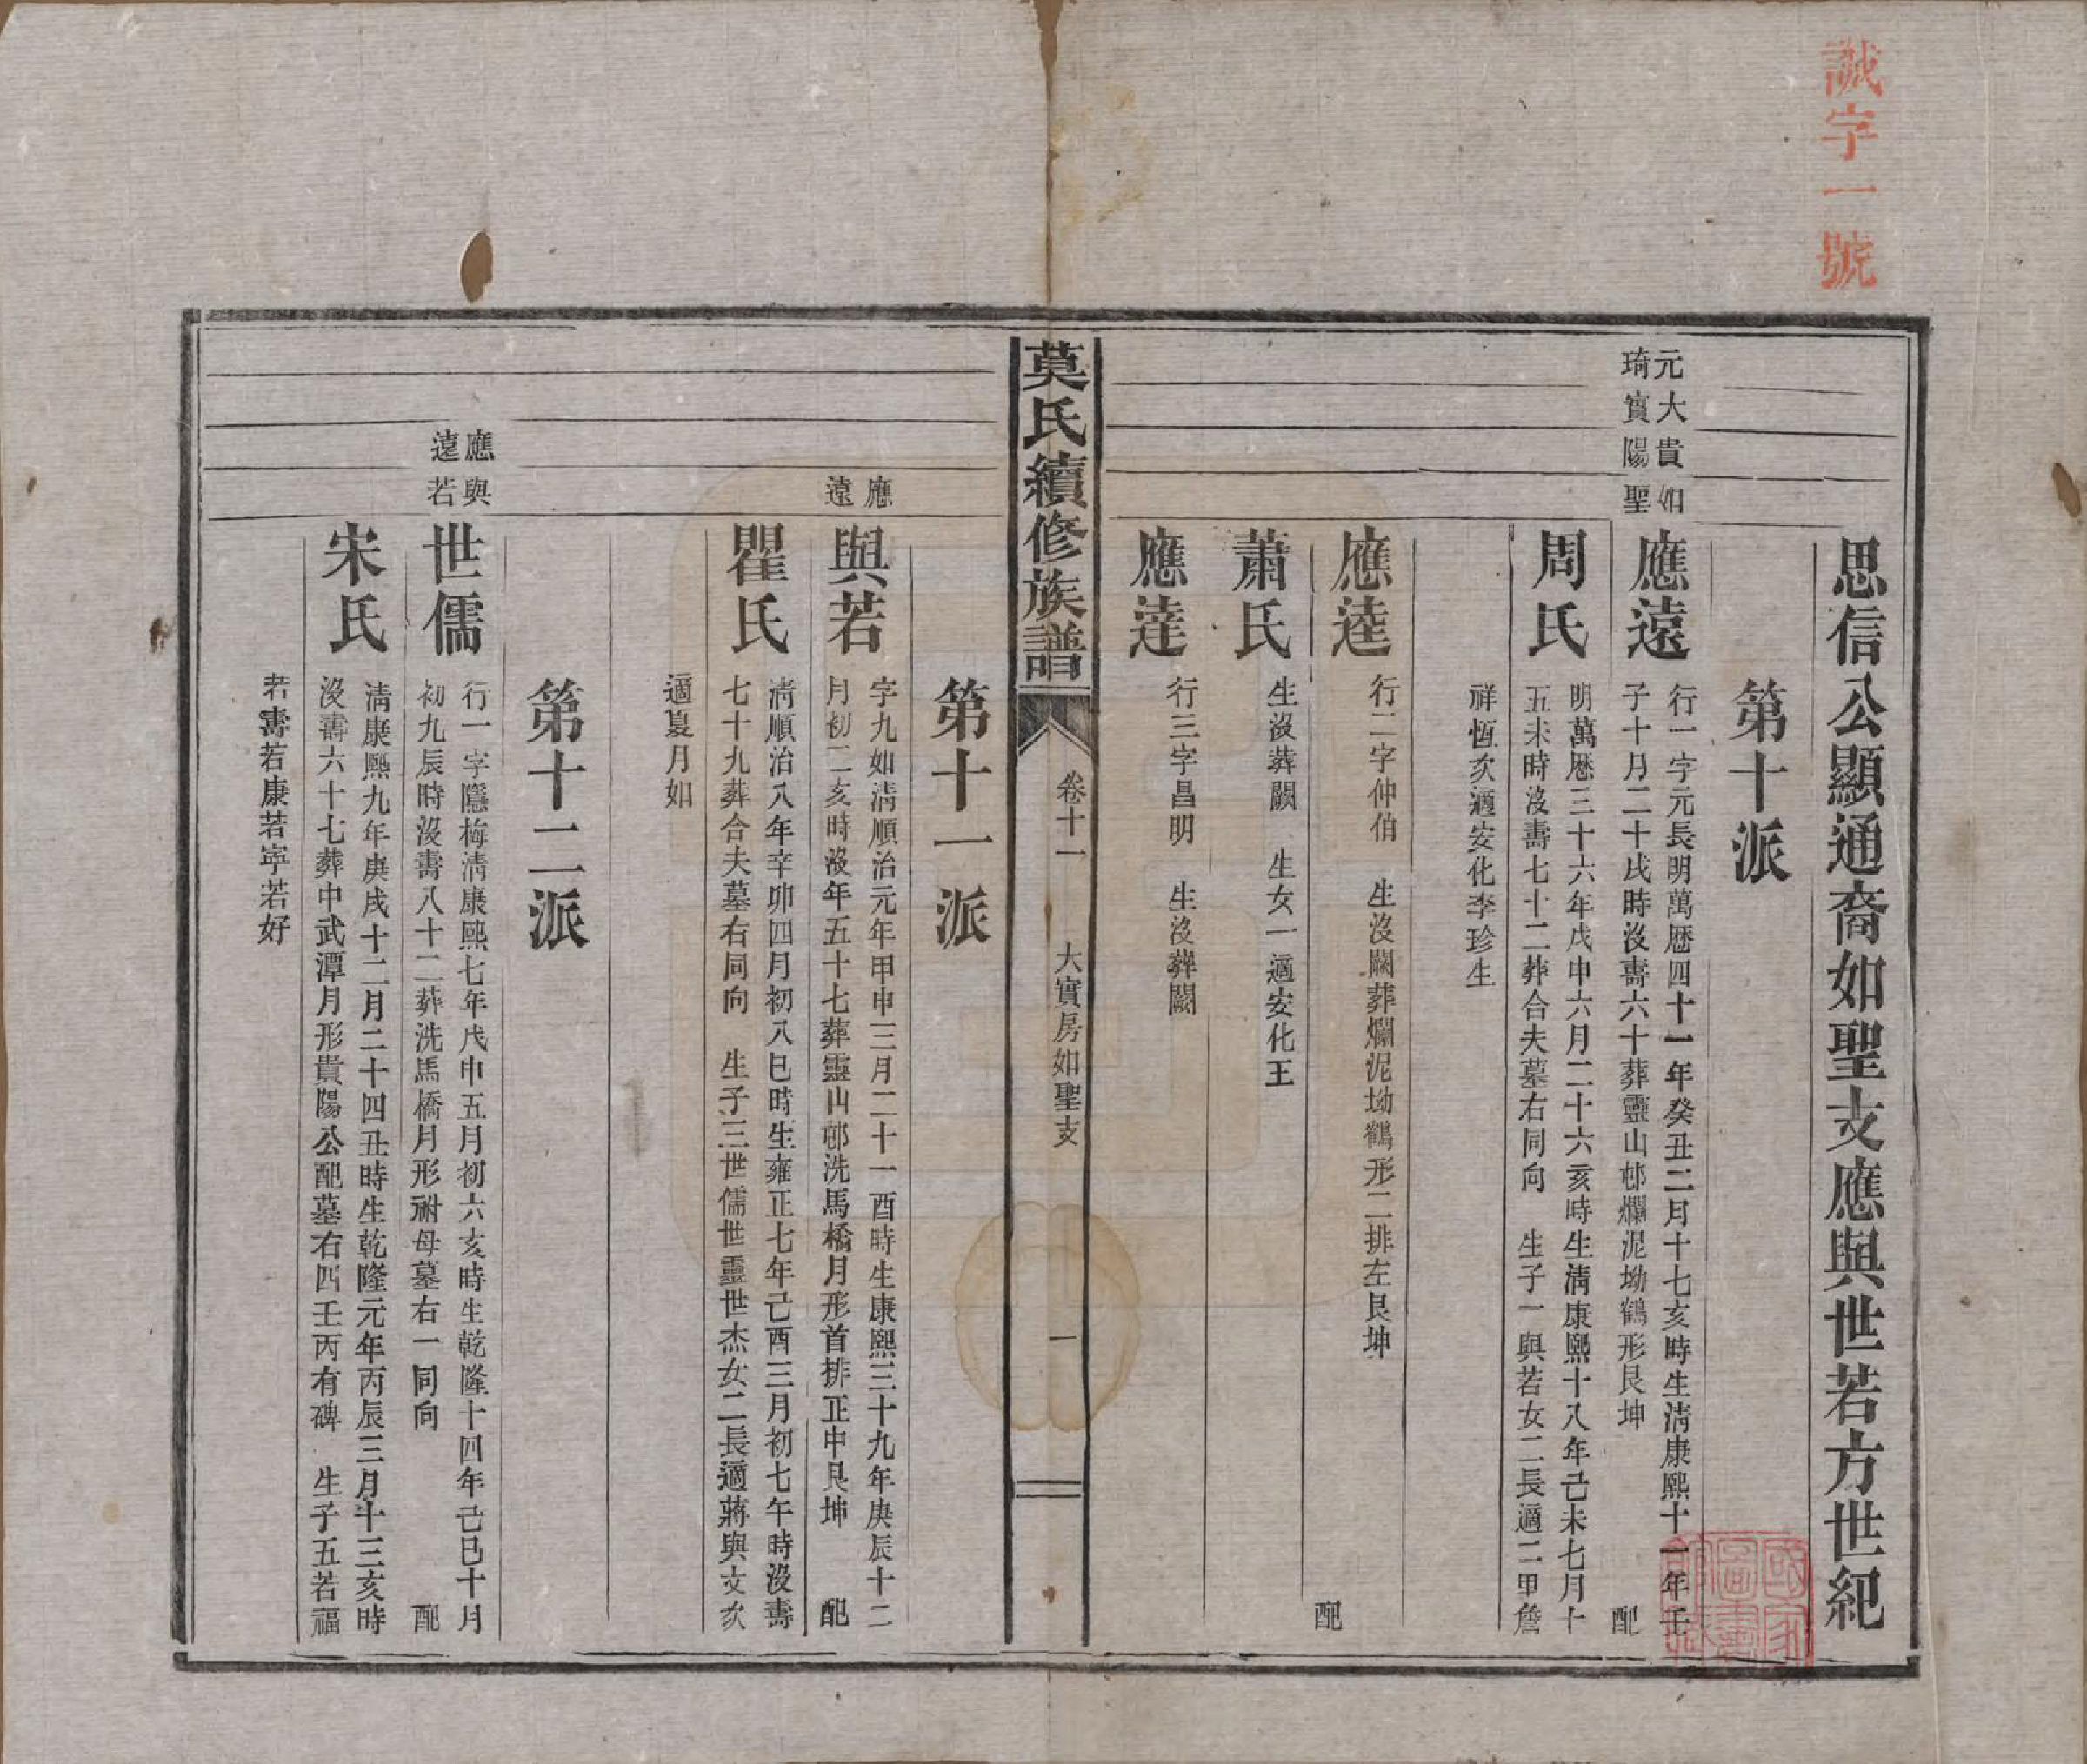 誠字一號
思信公顯通裔如聖支應與世若方世紀
第十派
元大貴如
琦實陽聖
應遠
行一字元長明萬歷四十一年癸丑二月十七亥時生淸康熙十一年壬
子十月二十戌時沒壽六十葬靈山邨爛泥坳鶴形艮坤 配
周氏
明萬歷三十六年戊申六月二十六亥時生淸康熙十八年己未七月十
五未時沒壽七十二葬合夫墓右同向 生子一與若女二長適二甲詹
祥恆次適安化李珍生
應逵
行二字仲伯 生沒闕葬爛泥坳鶴形二排左艮坤
配
蕭氏
生沒葬闕 生女一適安化王
應達
行三字昌明 生沒葬闕
莫氏續修族譜
卷十一
大實房如聖支
一
第十一派
應
遠
與若
字九如淸順治元年甲申三月二十一酉時生康熙三十九年庚辰十二
月初二亥時沒年五十七葬靈山邨洗馬橋月形首排正中艮坤 配
瞿氏
淸順治八年辛卯四月初八巳時生雍正七年己酉三月初七午時沒壽
七十九葬合夫墓右同向 生子三世儒世靈世杰女二長適蔣與文次
適夏月如
第十二派
應與
遠若
世儒
行一字隱梅淸康熙七年戊申五月初六亥時生乾隆十四年己巳十月
初九辰時沒壽八十二葬洗馬橋月形祔母墓右一同向 配
宋氏
淸康熙九年庚戌十二月二十四丑時生乾隆元年丙辰三月十三亥時
沒壽六十七葬中武潭月形貴陽公配墓右四壬丙有碑 生子五若福
若壽若康若寧若好